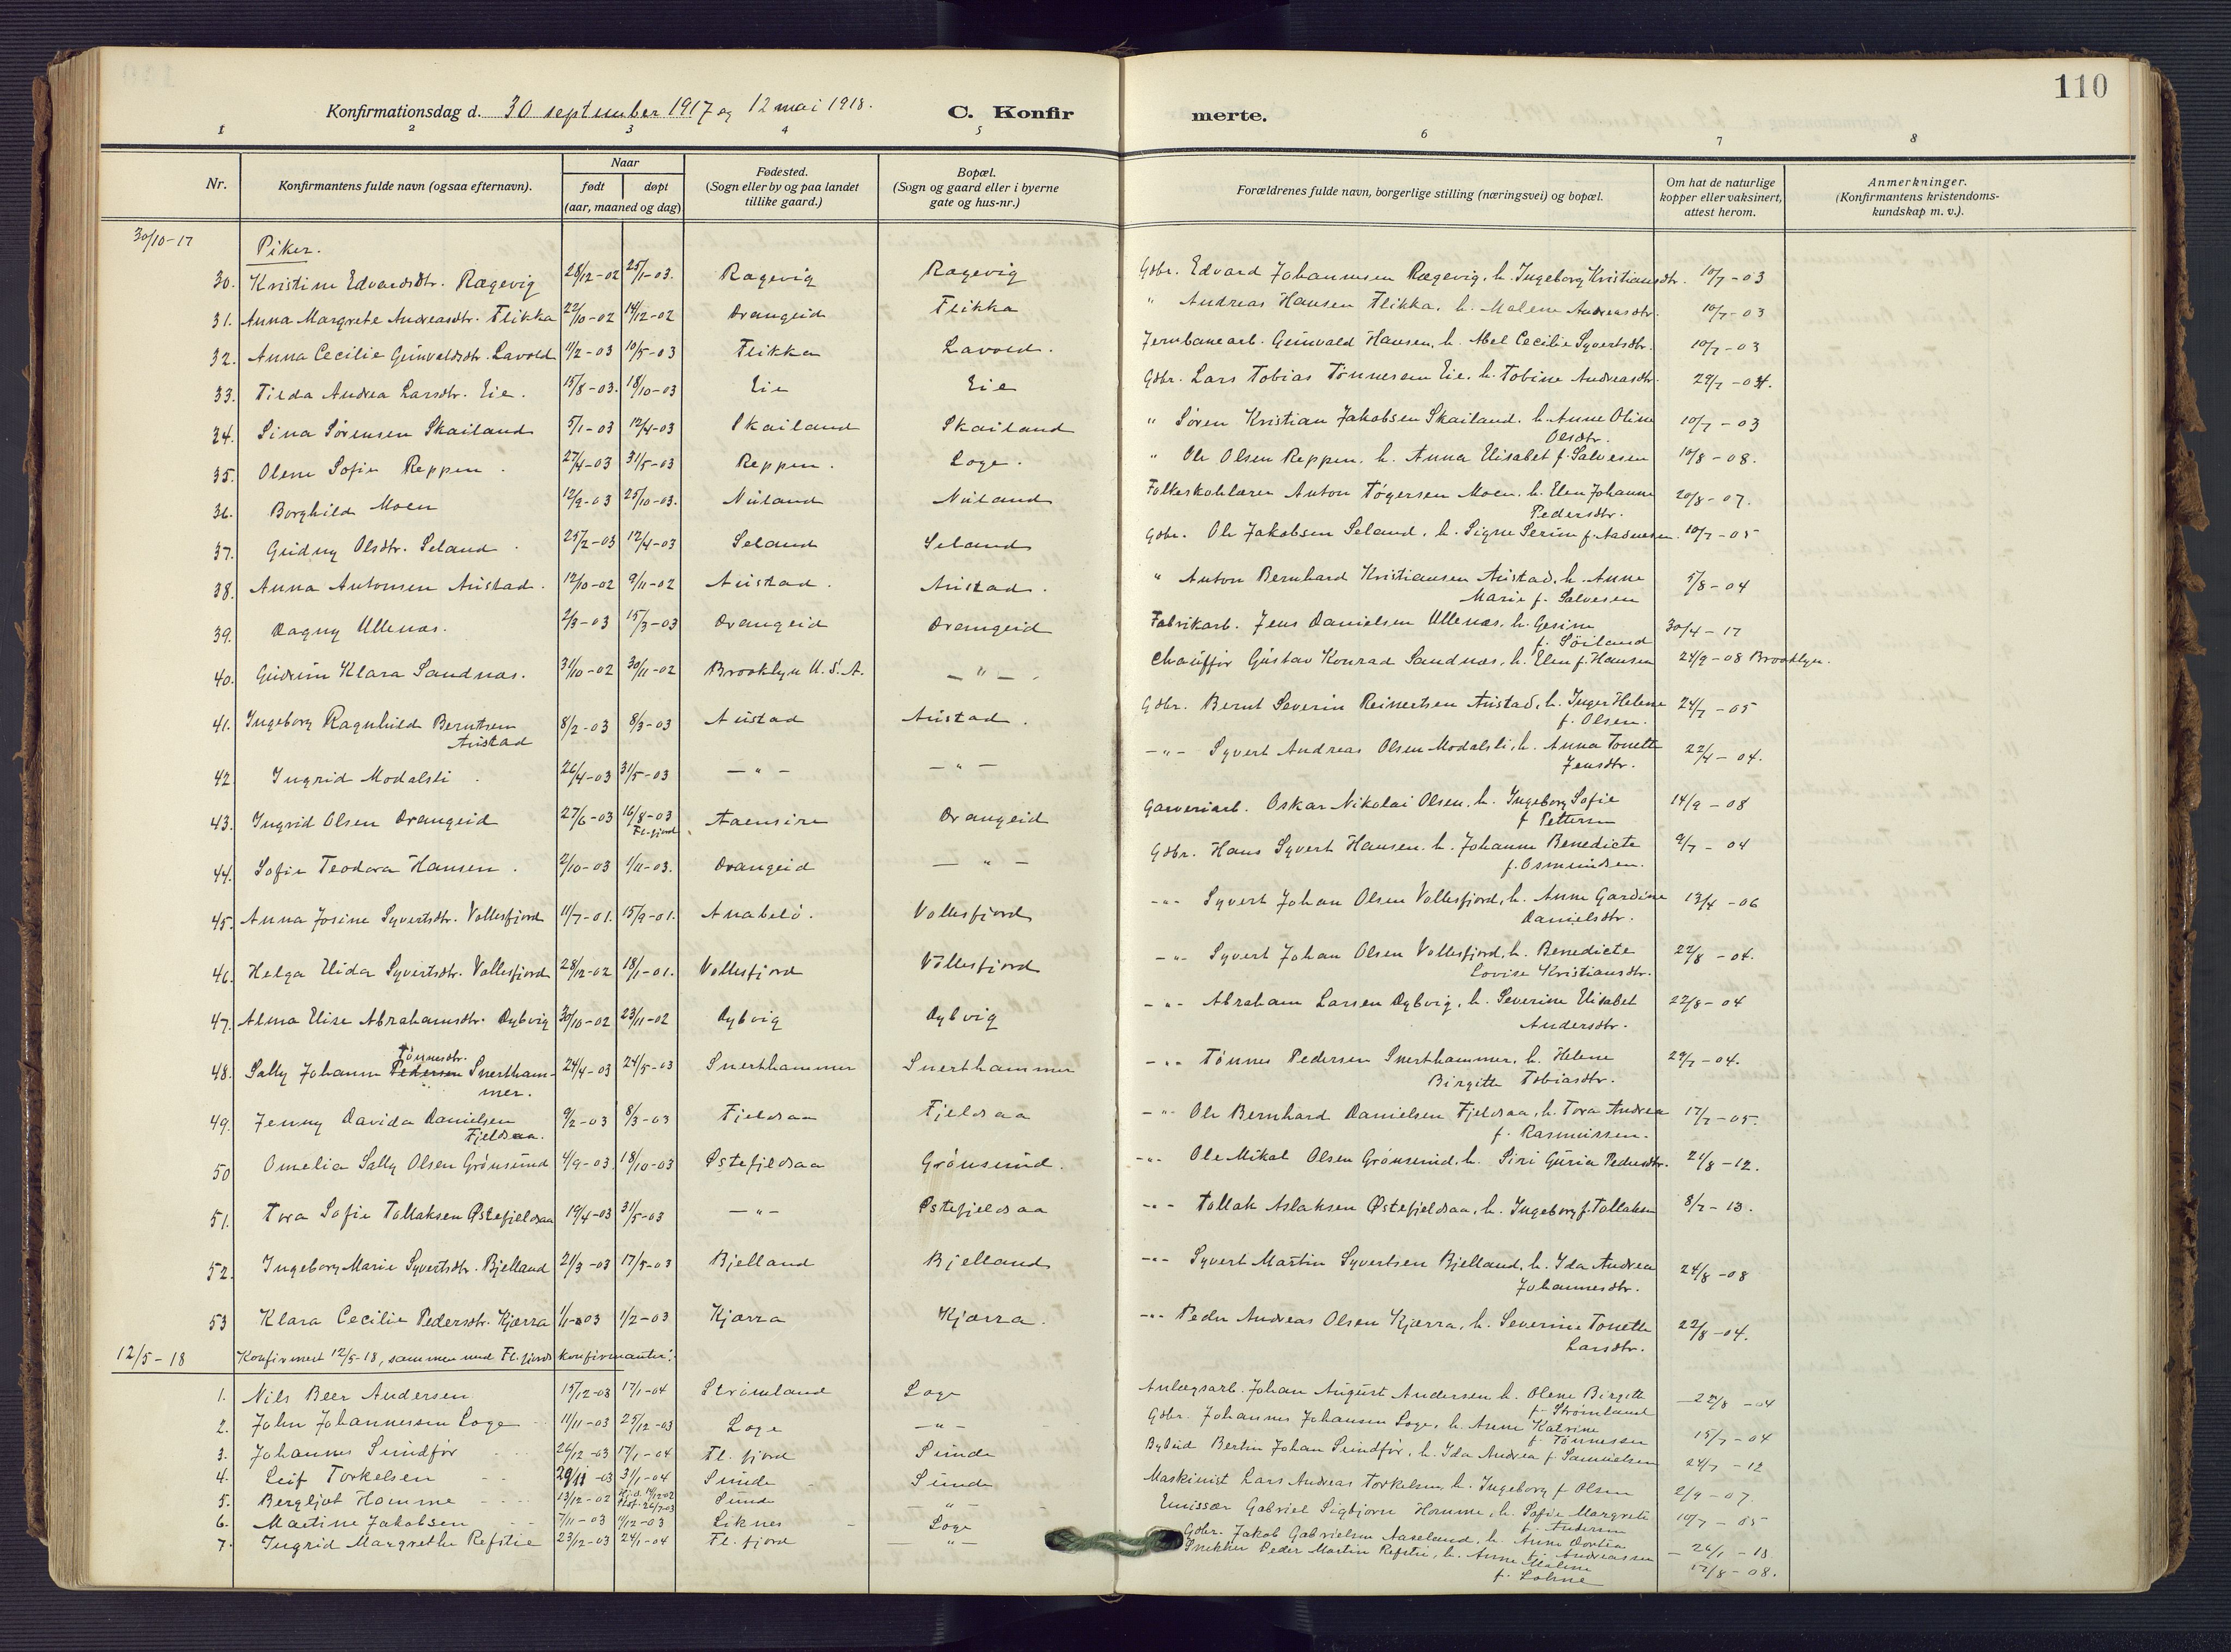 110
Konfirmationsdag d. 30 september 1917 og 12 mai 1918.
C. Konfir merte.
1 2 3 4 5 6 7 8
Nr. Konfirmantens fulde navn (ogsaa efternavn). Naar født døpt (aar, maaned og dag) Fødested. (Sogn eller by og paa landet tillike gaard.) Bopæl. (Sogn og gaard eller i byerne gate og hus-nr.) Forældrenes fulde navn, borgerlige stilling (næringsvei) og bopæl. Om hat de naturlige kopper eller vaksinert, attest herom. Anmerkninger. (Konfirmantens kristendoms-kundskap m. v.).
30/10-17 Piker.
30. Kristine Edvardsdtr. Rægevig 28/12-02 25/1-03. Rægevig Rægevig Gdbr. Edvard Johannesen Rægevig, h. Ingeborg Kristiansdtr. 10/7-03
31. Anna Margrete Andreasdtr. Flikka 22/10-02 14/12-02 Drangeid Flikka " Andreas Hansen Flikka, h. Malene Andreasdtr. 10/7-03
32. Anna Cecilie Grünvaldsdtr. Lavold 11/2-03 10/5-03 Flikka Lavold. Jernbanearb. Grünvald Hansen, h. Abel Cecilie Syvertsdtr. 10/7-03
33. Tilda Andrea Larsdtr. Eie. 15/8-03. 18/10-03 Eie Eie Gdbr. Lars Tobias Tønnesen Eie, h. Tobine Andreasdtr. 29/7-04.
34. Sina Sørensen Skailand 5/1-03 12/4-03 Skailand Skailand " Søren Kristian Jakobsen Skailand, h. Anne Oline Olsdtr. 10/7-03
35. Olene Sofie Reppen. 27/4-03 31/5-03 Reppen. Loge. " Ole Olsen Reppen, h. Anna Elisabet f. Salvesen 10/8-08.
36. Borghild Moen 12/9-03 25/10-03. Nuland Nuland Folkeskolelærer Anton Tøgersen Moen, h. Elen Johanne Pedersdtr. 20/8-07.
37. Gudny Olsdtr. Seland 25/2-03 12/4-03 Seland Seland Gdbr. Ole Jakobsen Seland, h. Signe Serine f. Aadnesen. 10/7-05
38. Anna Antonsen Austad. 12/10-02 9/11-02 Austad. Austad. " Anton Bernhard Kristiansen Austad, h. Anne Marie f. Salvesen 5/8-04
39. Dagny Ullenæs. 2/3-03 15/3-03 Drangeid Drangeid Fabrikarb. Jens Danielsen Ullenæs, h. Gesine f. Søiland 30/4-17
40. Gudrun Klara Sandnæs. 31/10-02 30/11-02 Brooklyn U.S.A. — " — Chauffør Gustav Konrad Sandnæs, h. Elen f. Hansen 24/9-08 Brooklyn.
41. Ingeborg Ragnhild Berntsen Austad 8/2-03 8/3-03 Austad Austad. Gdbr. Bernt Severin Reinertsen Austad, h. Inger Helene f. Olsen. 24/7-05
42 Ingrid Modalsli. 26/4-03 31/5-03 — " — — " — — " — Syvert Andreas Olsen Modalsli, h. Anna Tonette Jensdtr. 22/4-04.
43. Ingrid Olsen Drangeid 27/6-03 16/8-03 Fl.fjord Aaensire Drangeid Garveriarb. Oskar Nikolai Olsen, h. Ingeborg Sofie f. Pettersen 14/9-08
44. Sofie Teodora Hansen. 2/10-03 1/11-03. Drangeid — " — Gdbr. Hans Syvert Hansen, h. Johanne Benedicte f. Osmundsen. 9/7-04
45. Anna Josine Syvertsdtr. Vollesfjord 11/7-01. 15/9-01. Anabelø. Vollesfjord — " — Syvert Johan Olsen Vollesfjord, h. Anne Gardine Danielsdtr. 13/4-06
46. Helga Elida Syvertsdtr. Vollesfjord 28/12-02 18/1-01. Vollesfjord Vollesfjord — " — Syvert Johan Olsen Vollesfjord, h. Benedicte Lovise Kristiansdtr. 22/8-04.
47. Alma Elise Abrahamsdtr. Dybvig 30/10-02 23/11-02 Dybvig Dybvig — " — Abraham Larsen Dybvig, h. Severine Elisabet Andersdtr. 22/8-04
48. Sally Johanne Pedersen Tønnesdtr. Snerthammer. 24/4-03 24/5-03 Snerthammer Snerthammer — " — Tønnes Pedersen Snerthammer, h. Helene Birgitte Tobiasdtr. 29/7-04.
49. Jenny Davida Danielsen Fjeldsaa. 9/2-03 8/3-03 Fjeldsaa Fjeldsaa — " — Ole Bernhard Danielsen Fjeldsaa, h. Tora Andrea f. Rasmussen. 17/7-05.
50 Omelia Sally Olsen Grønsund 4/9-03. 18/10-03 Østefjeldsaa Grønsund. — " — Ole Mikal Olsen Grønsund, h. Siri Guria Pedersdtr. 21/8-12.
51. Tora Sofie Tollaksen Østefjeldsaa 19/4-03 31/5-03 — " — Østefjeldsaa — " — Tollak Aslaksen Østefjeldsaa, h. Ingeborg f. Tollaksen 8/7-13.
52. Ingeborg Marie Syvertsdtr. Bjelland 21/3-03 17/5-03 Bjelland Bjelland — " — Syvert Martin Syvertsen Bjelland, h. Ida Andrea Johannesdtr. 24/8-08
53 Klara Cecilie Pedersdtr. Kjørra 1/1-03 1/2-03 Kjørra Kjørra. — " — Peder Andreas Olsen Kjørra, h. Severine Tonette Larsdtr. 22/8-04.
12/5-18 Konfirmert 12/5-18, sammen med Fl.fjords konfirmanter:
1. Nils Beer Andersen 15/12-03 17/1-04 Strømland Loge Anlægsarb. Johan August Andersen h. Olene Birgitte f. Strømland 22/8-04
2. John Johannessen Loge 11/11-03 25/12-03 Loge — " — Gdbr. Johannes Johansen Loge, h. Anne Katrine f. Tønnessen 15/7-04
3. Johannes Sundfør 26/12-03 17/1-04 Fl. fjord Sunde Bybud Bertin Johan Sundfør, h. Ida Andrea f. Samuelsen 24/7-12
4. Leif Torkelsen 29/11-03 31/1-04 Sunde Sunde Maskinist Lars Andreas Torkelsen, h. Ingeborg f. Olsen 2/9-07.
5. Bergljot Homme 13/12-02 Sunde — " — Emissær Gabriel Sigbjørn Homme, h. Sofie Margrete f. Andersen 10/7-05
6. Martine Jakobsen 7/11-03 11/12-03 Liknes Loge Gdbr. Jakob Gabrielsen Aaseland, h. Anne Dortea f. Andreassen 26/1-18
7. Ingrid Margrethe Refstie 23/12-03 24/1-04 Fl. fjord — " — Snekker Peder Martin Refstie, h. Anne Malene f. Lohne 12/8-08.